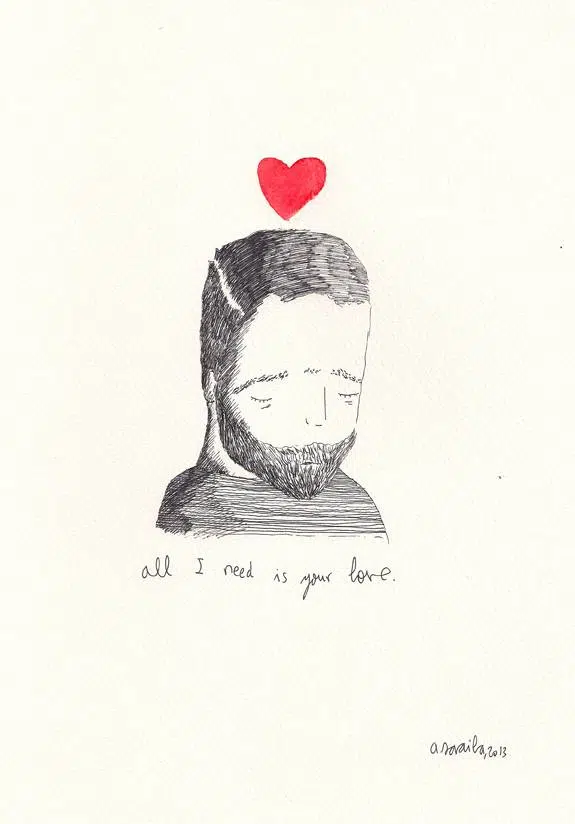 all I need is your love.
asoraila, 2013